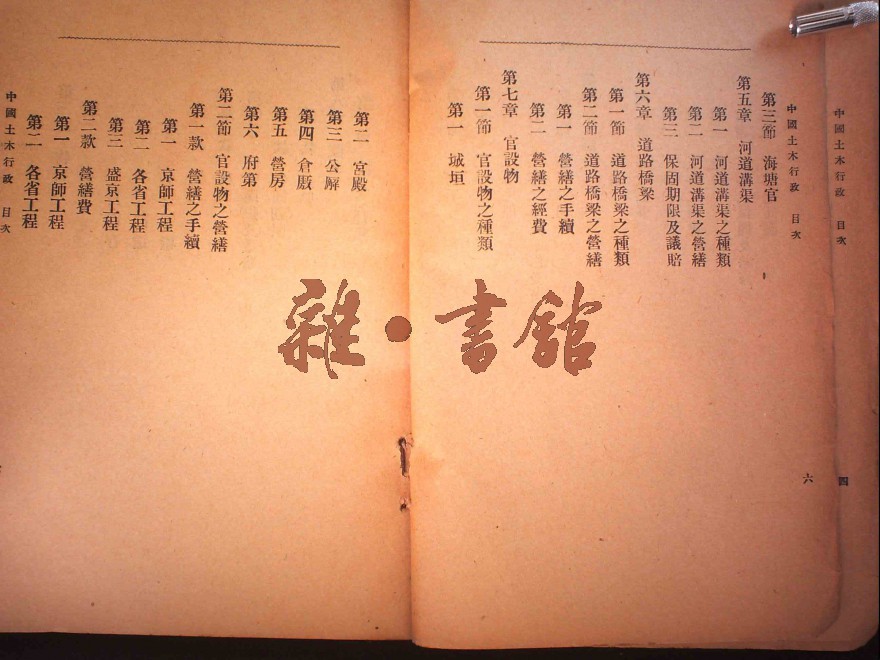 中國土木行政 目次
四
中國土木行政 目次
六
第三節 海塘官
第五章 河道溝渠
第一 河道溝渠之種類
第二 河道溝渠之營繕
第三 保固期限及議賠
第六章 道路橋梁
第一節 道路橋梁之種類
第二節 道路橋梁之營繕
第一 營繕之手續
第二 營繕之經費
第七章 官設物
第一節 官設物之種類
第一 城垣
第二 宮殿
第三 公廨
第四 倉廒
第五 營房
第六 府第
第二節 官設物之營繕
第一款 營繕之手續
第一 京師工程
第二 各省工程
第三 盛京工程
第二款 營繕費
第一 京師工程
第二 各省工程
中國土木行政 目次
雜·書館